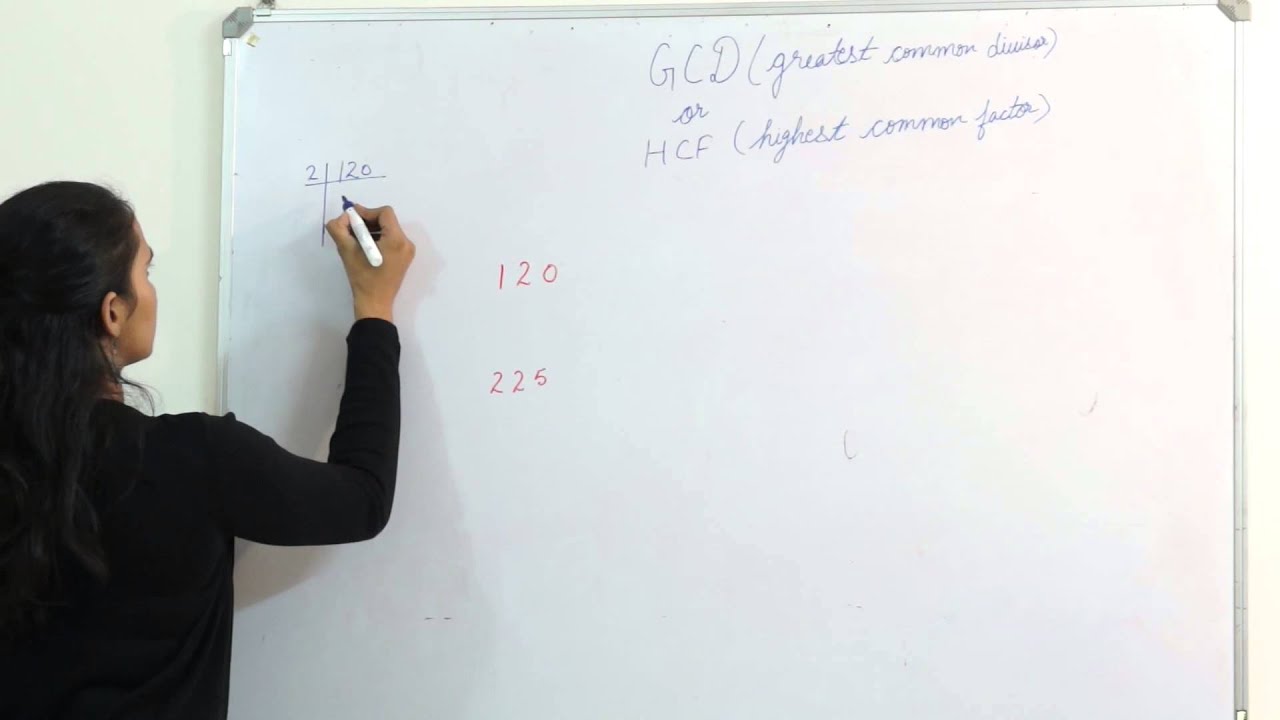 GCD (greatest common divisor)
or
HCF (highest common factor)
2 120
120
225